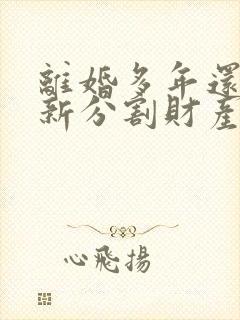 離婚多年還
新分割財產
心飛揚